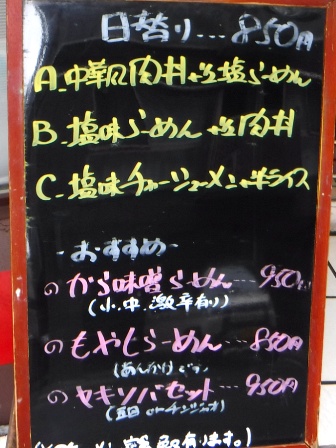 日替り…850円
A.中華風肉丼+半塩らーめん
B.塩味らーめん+半肉丼
C.塩味チャーシューメン+半ライス
-おすすめ-
のから味噌らーめん…950円
(小、中、激辛有り)
のもやしらーめん…850円
(あんかけです)
のヤキソバセット…950円